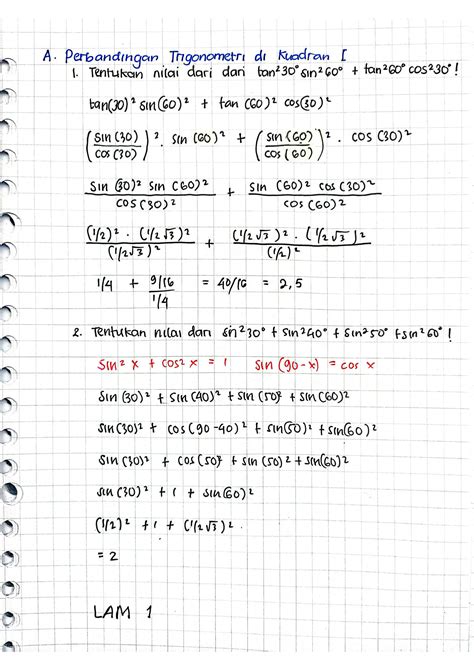 A. Perbandingan Trigonometri di Kuadran I
1. Tentukan nilai dari dari tan²30° sin²60° + tan²60° cos²30° !
tan(30)² sin(60)² + tan (60)² cos(30)²
(sin (30) / cos (30))² . sin (60)² + (sin (60) / cos (60))² . cos (30)²
sin (30)² sin (60)² / cos (30)² + sin (60)² cos (30)² / cos (60)²
(1/2)² . (1/2√3)² / (1/2√3)² + (1/2√3)² . (1/2√3)² / (1/2)²
1/4 + 9/16 / 1/4 = 40/16 = 2,5
2. Tentukan nilai dari sin²30° + sin²40° + sin²50° + sin²60° !
sin²x + cos²x = 1 sin (90-x) = cos x
sin (30)² + sin (40)² + sin (50)² + sin (60)²
sin (30)² + cos (90-40)² + sin(50)² + sin(60)²
sin (30)² + cos (50)² + sin (50)² + sin(60)²
sin (30)² + 1 + sin(60)²
(1/2)² + 1 + (1/2√3)²
= 2
LAM 1